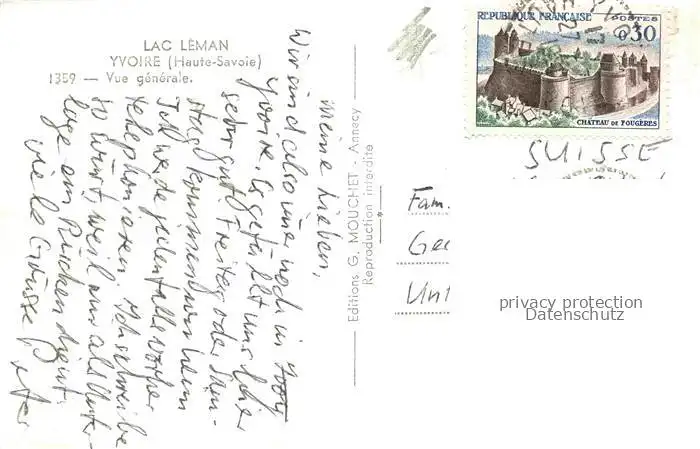 LAC LÉMAN
YVOIRE (Haute-Savoie)
1359 — Vue générale.
meine Lieben,
Wir sind also immer noch in
Yvoire. Es gefällt uns hier
sehr gut. Freitag oder Sam-
stag kommen wir heim
Ich werde jedenfalls vorher
telephonieren. Ich schreibe
so wirr, weil uns als Unter-
lage ein Rücken dient.
viele Grüsse Peter
Editions G. MOUCHET - Annecy
Reproduction interdite
REPUBLIQUE FRANÇAISE POSTES
0,30
CHÂTEAU DE FOUGÈRES
SUISSE
Fam.
Unt
privacy protection
Datenschutz